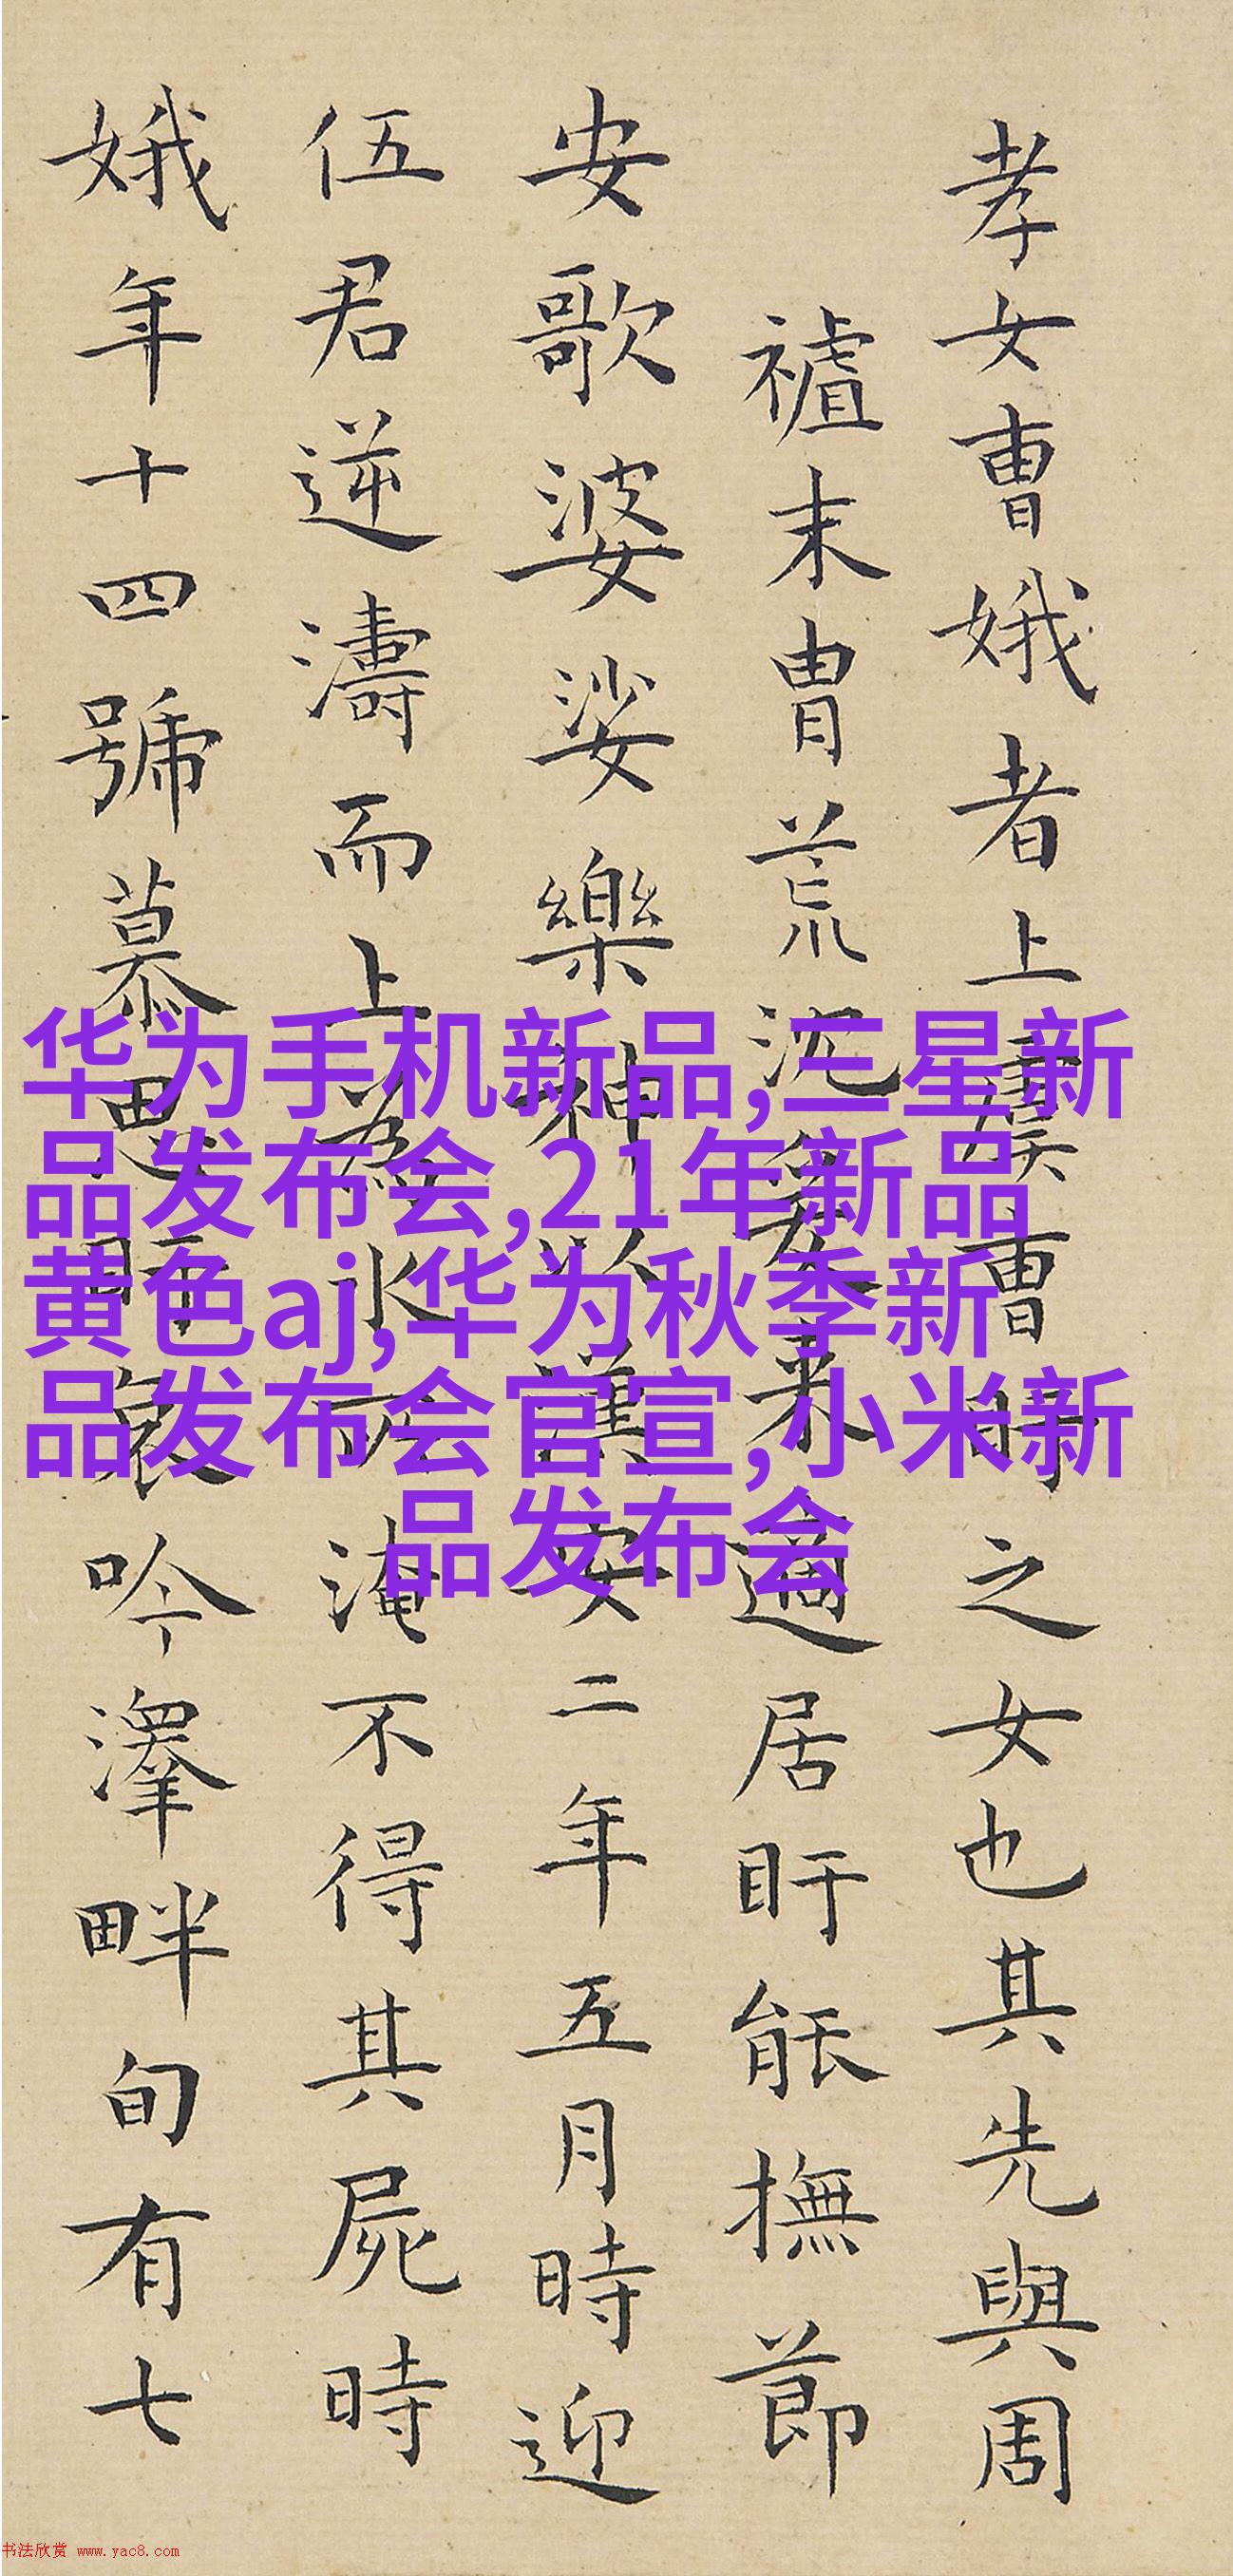 孝女曺娥者上虞曺盱之女也其先與周
末胄荒沈爰来適居盱能撫節
安歌婆娑樂神以漢安二年五月時迎
伍君逆濤而上為水所淹不得其屍時
娥年十四號慕思盱哀吟澤畔旬有七
华为手机新品,三星新
品发布会,21年新品
黄色aj,华为秋季新
品发布会官宣,小米新
品发布会
书法欣赏 www.yac8.com